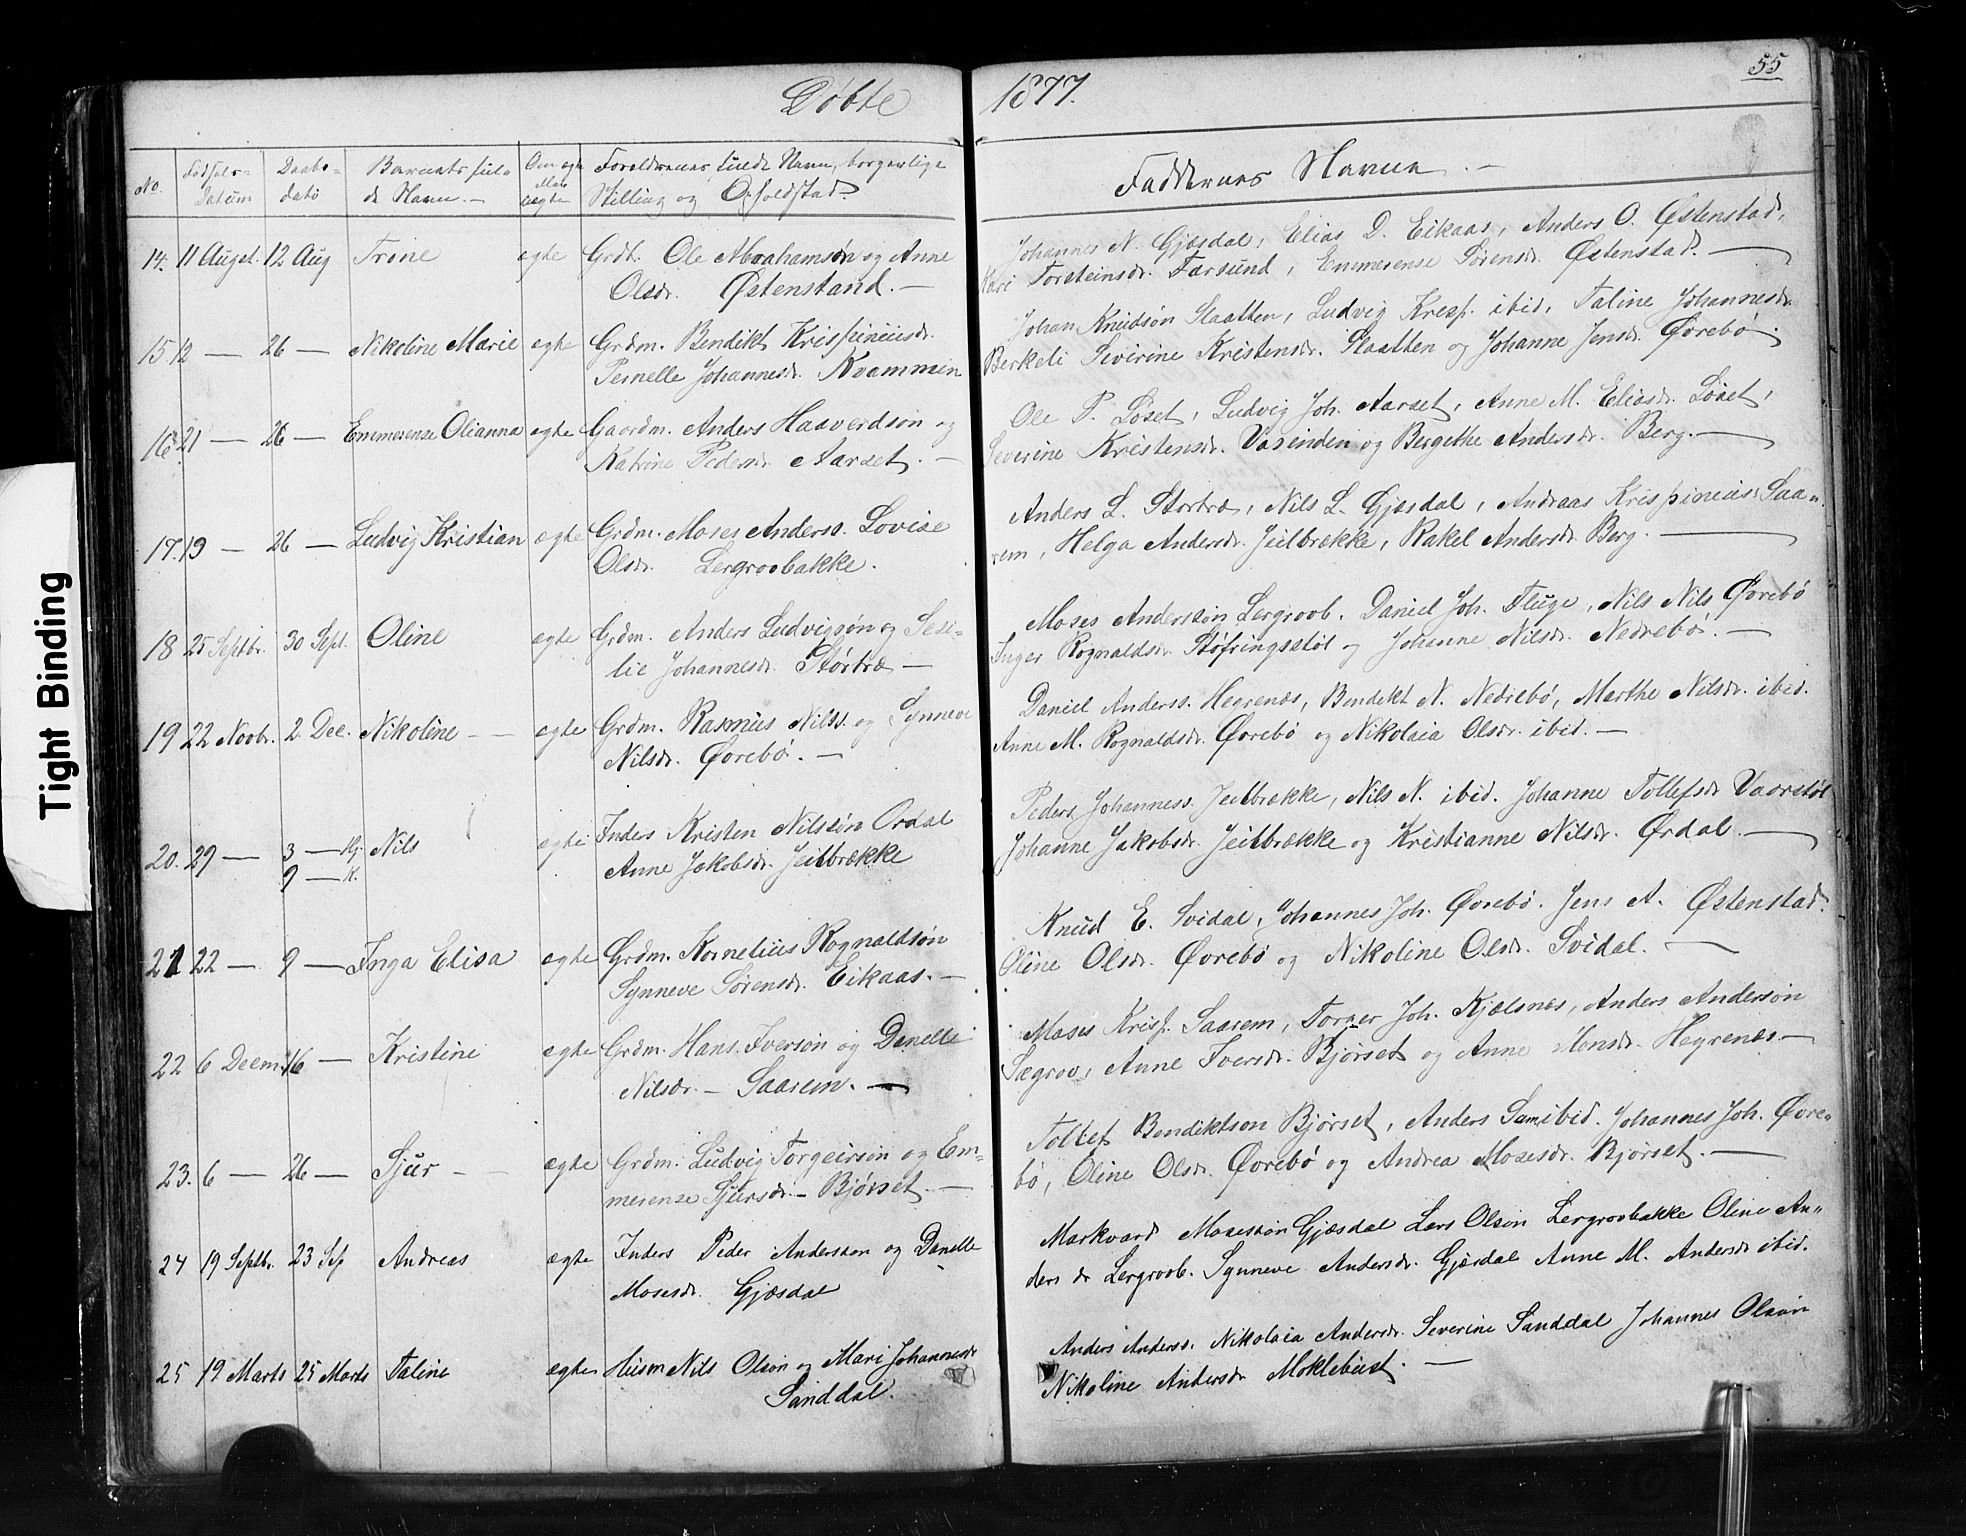 Døbte
1877.
55
No. Fødsels-Datum Daabsdato Barnets fulde Navn. Om ægte eller uægte Forældrenes fulde Navn, borgerlige Stilling og Opholdstad.
Faddernes Navne. —
14. 11 August. 12 Aug Trine ægte Grdt. Ole Abrahamsøn og Anne
Olsdr. Østenstand. —
Johannes N. Gjæsdal, Elias D. Eikaas, Anders O. Østenstad,
Kari Torsteinsdr. Farsund, Emmerense Sørensdr. Østenstad. —
15. 12 — 26 — Nikoline Marie ægte Grdm. Bendikt Krispiniusdr.
Pernelle Johannesdr. Kvammen
Johan Knudsøn Slaatten, Ludvig Kresp. ibid, Taline Johannesdr.
Berkeli Severine Kristensdr. Slaatten og Johanne Jensdr. Øvrebø.
16. 21 — 26 — Emmerense Olianna ægte Gaardm. Anders Haaverdsøn og
Katrine Pedersdr. Aarset. —
Ole P. Løset, Ludvig Joh. Aarset, Anne M. Eliasdr. Løset,
Severine Kristensdr. Vasenden og Bergethe Andersdr. Berg. —
17. 19 — 26 — Ludvig Kristian ægte Grdm. Moses Anderss. Lovise
Olsdr. Lergrovbakke.
Anders L. Stortræ, Nils L. Gjæsdal, Andreas Krispinius Saa-
rem, Helga Andersdr. Jeilbrække, Rakel Andersdr. Berg. —
18 25 Septbr. 30 Sept. Oline ægte Grdm. Anders Ludvigsøn og Sesi-
lie Johannesdr. Stortræ —
Moses Andersson Lergroob. Daniel Joh. Fluge, Nils Nils Øvrebø
Inger Rognaldsdr. Støfringsstøl og Johanne Nilsdr. Nedrebø. —
19 22 Novbr. 2 Dec. Nikoline — ægte Grdm. Rasmus Nilss. og Synneve
Nilsdr. Øvrebø. —
Daniel Anderss. Hegrenæs, Bendikt N. Nedrebø, Marthe Nilsdr. ibid.
Anne M. Rognaldsdr. Øvrebø og Nikolaia Olsdr. ibid. —
20. 29 — 3 — Hj. Nils ægte Inders Kristen Nilssøn Ordal
9 — K. Anne Jakobsdr. Jeilbrække
Peders Johanness. Jeilbrække, Nils N. ibid. Johanne Tollefsdr Vaarstøl
Johanne Jakobsdr. Jeilbrække og Kristianne Nilsdr. Ørdal. —
21 22 — 9 — Inga Elisa ægte Grdm. Kornelius Rognaldsøn
Synneve Sørensdr. Eikaas. —
Knud E. Svidal, Johannes Joh. Øvrebø. Jens A. Østenstad.
Oline Olsdr. Øvrebø og Nikoline Olsdr. Svidal. —
22 6 Decm. 16 — Kristine ægte Grdm. Hans Iversøn og Danelle
Nilsdr. — Saarem. —
Moses Krisp. Saarem, Torger Joh. Kjælsnes, Anders Andersøn
Sægrov, Anne Iversdr. Bjørset og Anne Monsdr. Hegrenæs —
23. 6 — 26 — Sjur — ægte Grdm. Ludvig Torgeirsøn og Em-
merense Sjursdr. — Bjørset. —
Tollef Bendiktsøn Bjørset, Anders Sam ibid. Johannes Joh. Øvre-
bø, Oline Olsdr. Øvrebø og Andrea Mosesdr. Bjørset. —
24 19 Septbr. 23 Sep Andreas ægte Inders Peder Anderssøn og Danelle
Mosesdr. Gjæsdal
Markvard Mosessøn Gjæsdal Lars Olsøn Lergroobakke Oline An-
ders dr Lergroob. Synneve Andersdr. Gjæsdal Anne M. Andersdr ibid.
25 12 Marts 25 Marts Taline ægte Husm Nils Olsøn og Mari Johannesdr
Sanddal.
Anders Anderss. Nikolaia Andersdr. Severine Sanddal Johannes Olsøn
Nikoline Andersdr Moklebust. —
Tight Binding